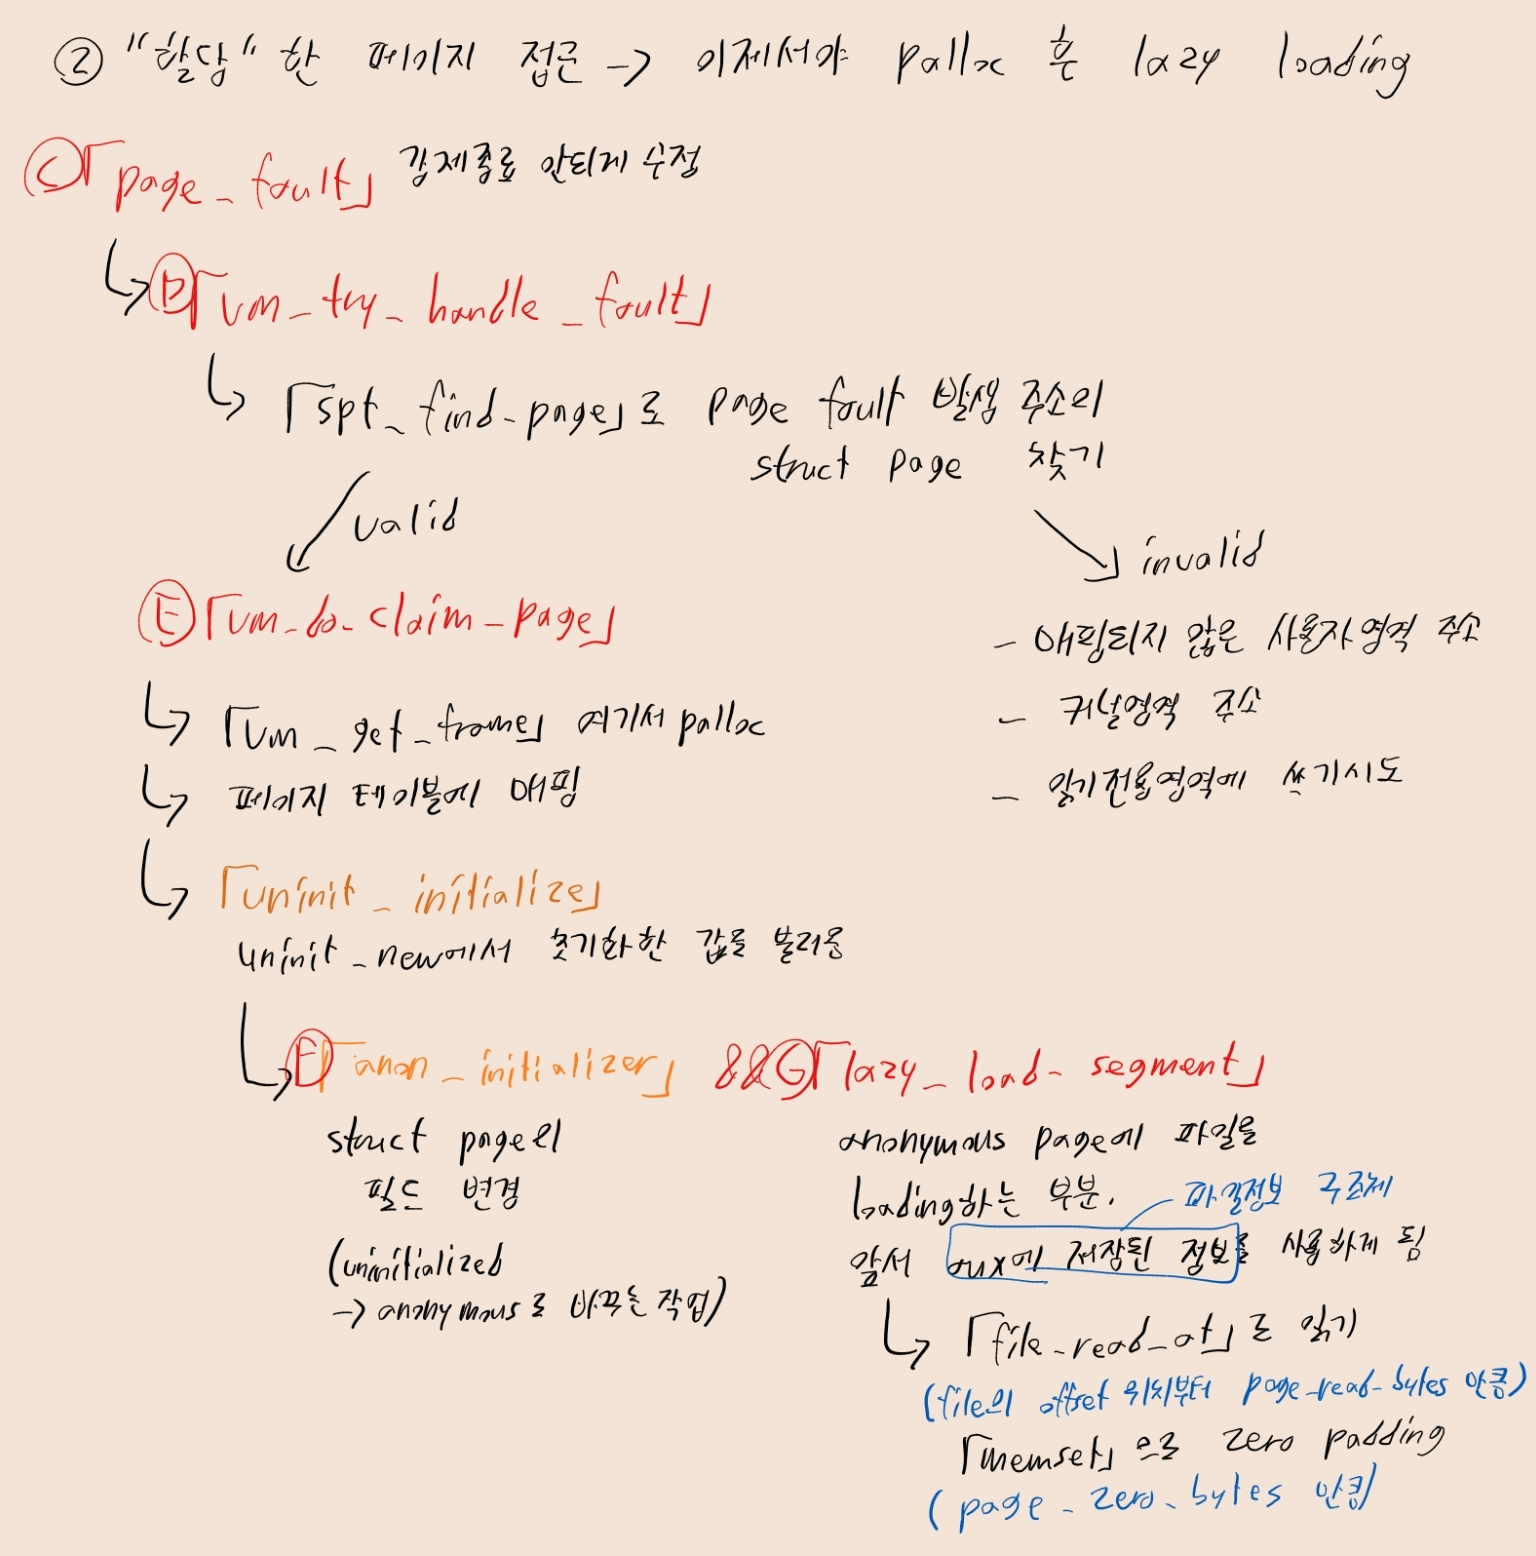 ② "할당" 한 페이지 접근 -> 이제서야 palloc 후 lazy loading
Ⓒ「page_fault」 강제종료 안되게 수정
Ⓓ「vm_try_handle_fault」
「spt_find-page」로 page fault 발생 주소의
struct page 찾기
valid
invalid
Ⓔ「vm_do_claim_page」
- 매핑되지 않은 사용자영역 주소
「vm_get_frame」 여기서 palloc
- 커널영역 주소
페이지 테이블에 매핑
- 읽기전용영역에 쓰기시도
「uninit_initialize」
uninit_new에서 초기화한 값을 불러옴
Ⓕ「anon_initializer」 && Ⓖ「lazy_load_segment」
struct page의
필드 변경
(uninitialized
-> anonymous로 바꾸는 작업)
anonymous page에 파일을
loading하는 부분.
파일정보 구조체
앞서 aux에 저장된 정보를 사용하게 됨
「file_read_at」로 읽기
(file의 offset 위치부터 page_read_bytes 만큼)
「memset」으로 zero padding
(page_zero_bytes 만큼)